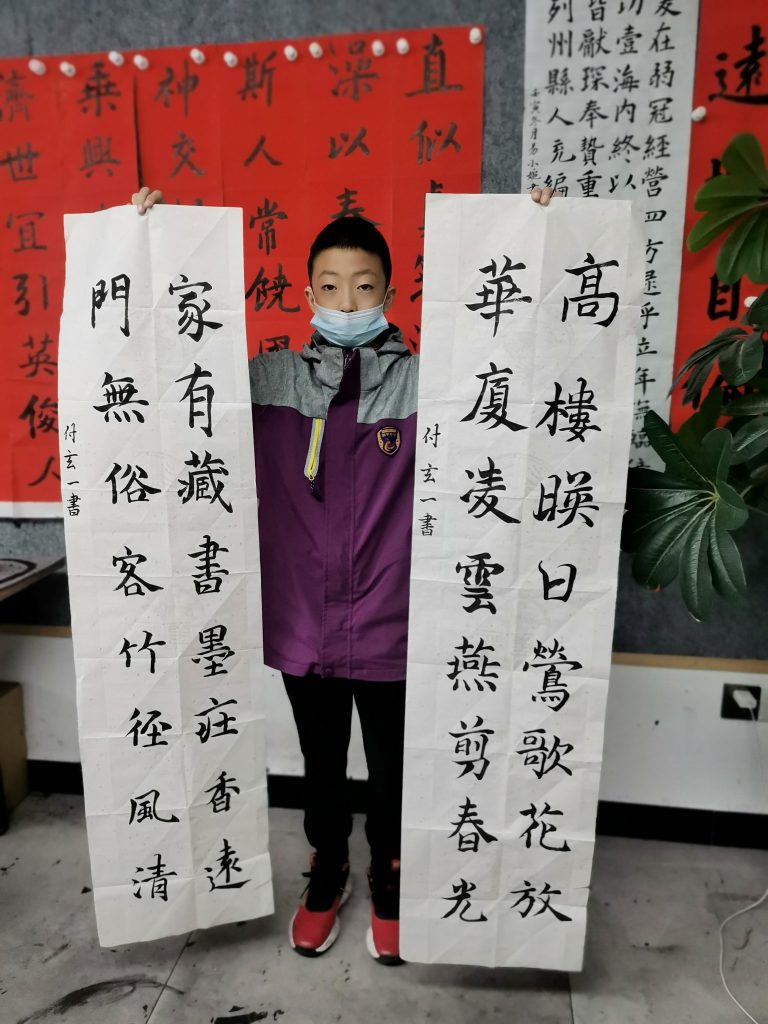 遠
爰在弱冠經營四方逮乎立年無
功壹海内終以
皆獻琛奉贄重
列州縣人充編
壬寅冬月易小婉
直似
深以春
斯人常饒國
神交
乗興
濟世宜引英俊人
高樓暎日鶯歌花放
華廈凌雲燕剪春光
付玄一書
家有藏書墨庄香遠
門無俗客竹徑風清
付玄一書